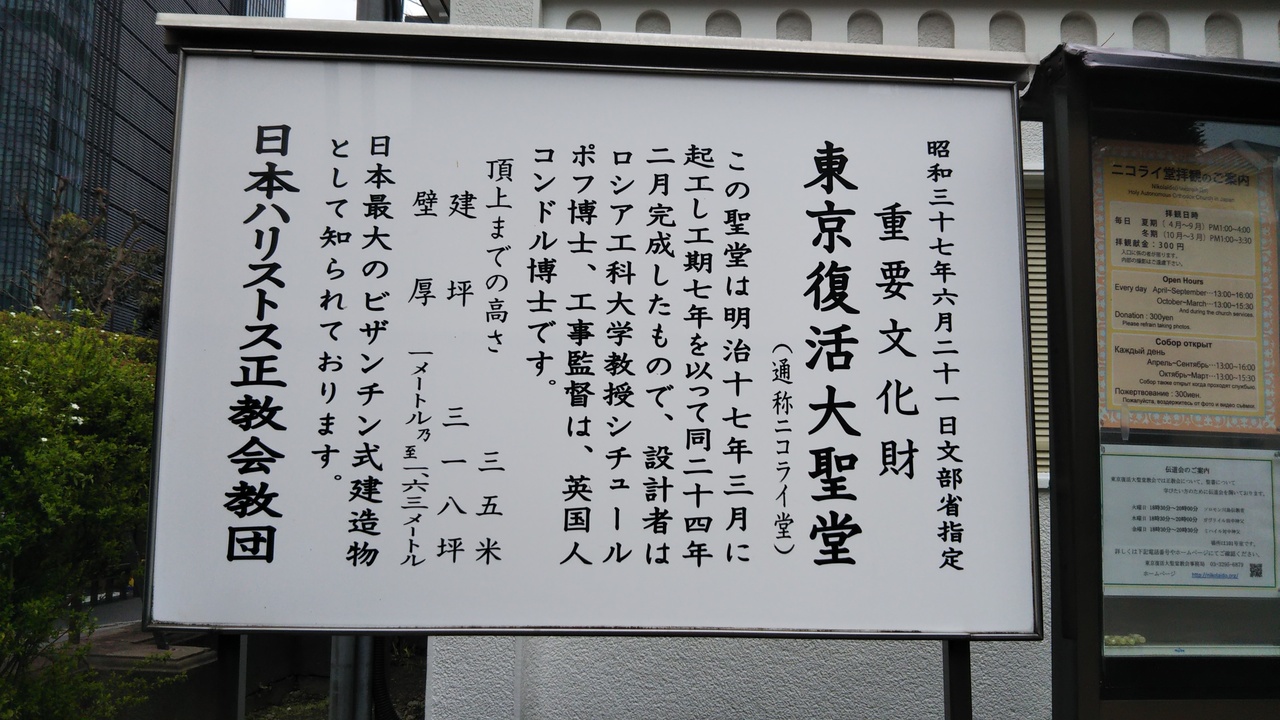 昭和三十七年六月二十一日文部省指定
重要文化財
東京復活大聖堂
（通称ニコライ堂）
この聖堂は明治十七年三月に
起工し工期七年を以って同二十四年
二月完成したもので、設計者は
ロシア工科大学教授シチュール
ポフ博士、工事監督は、英国人
コンドル博士です。
頂上までの高さ 三五米
建坪 三一八坪
壁厚 一メートル乃至一、六三メートル
日本最大のビザンチン式建造物
として知られております。
日本ハリストス正教会教団
ニコライ堂拝観のご案内
拝観日時
毎日 夏期〔4月～9月〕PM1:00~4:00
冬期〔10月～3月〕PM1:00~3:30
拝観献金：300円
Open Hours
Every day April~September…13:00~16:00
October~March…13:00~15:30
And during the church services.
Donation : 300yen
Please refrain taking photos.
Собор открыт
Каждый день
Апрель-Сентябрь…13:00~16:00
Октябрь-Март…13:00~15:30
Собор также открыт когда проходят службы.
Пожертвование : 300иен.
Пожалуйста, воздержитесь от фото и видео съёмки.
伝道会のご案内
詳しくは下記電話番号やホームページにてご確認ください。
ホームページ